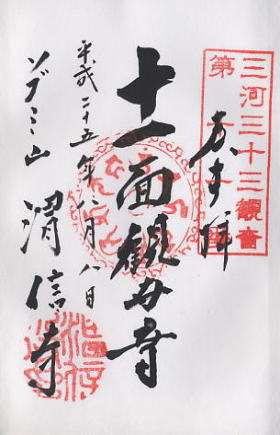 三河三十三觀音
奉拝
十一面観世音
平成二十五年八月八日
ソブミ山 渭信寺